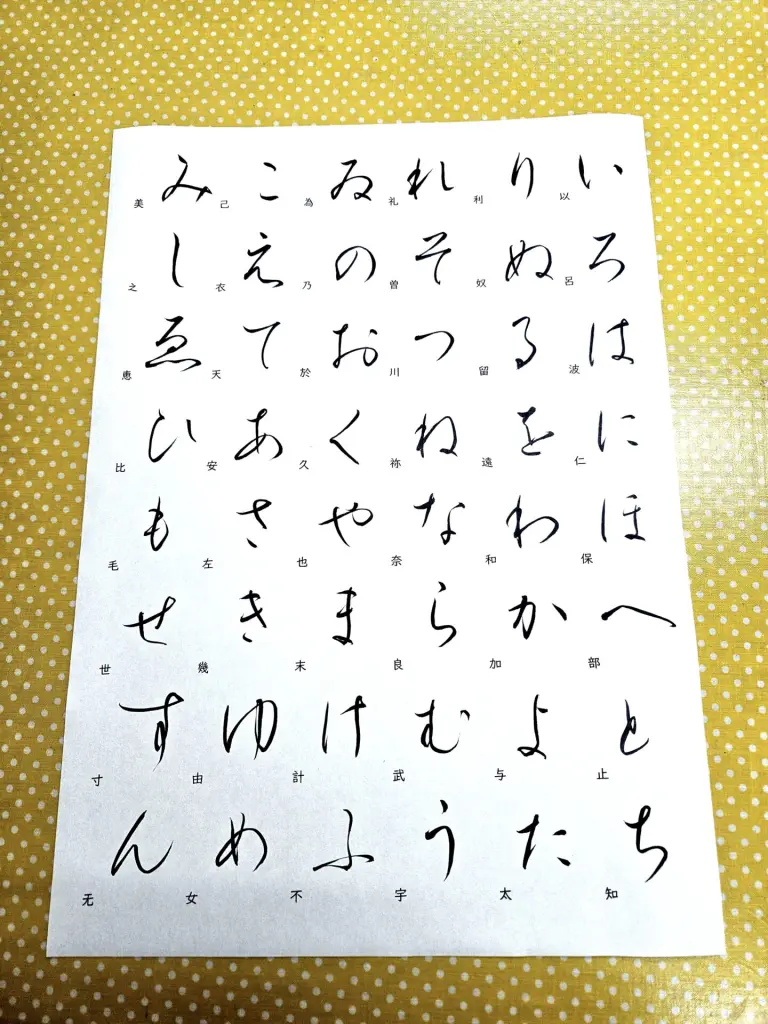 いろはにほへとち
以呂波仁保部止知
りぬるをわかよた
利奴留遠和加与太
れそつねならむう
礼曽川祢奈良武宇
ゐのおくやまけふ
為乃於久也末計不
こえてあさきゆめ
己衣天安左幾由女
みしゑひもせすん
美之恵比毛世寸无